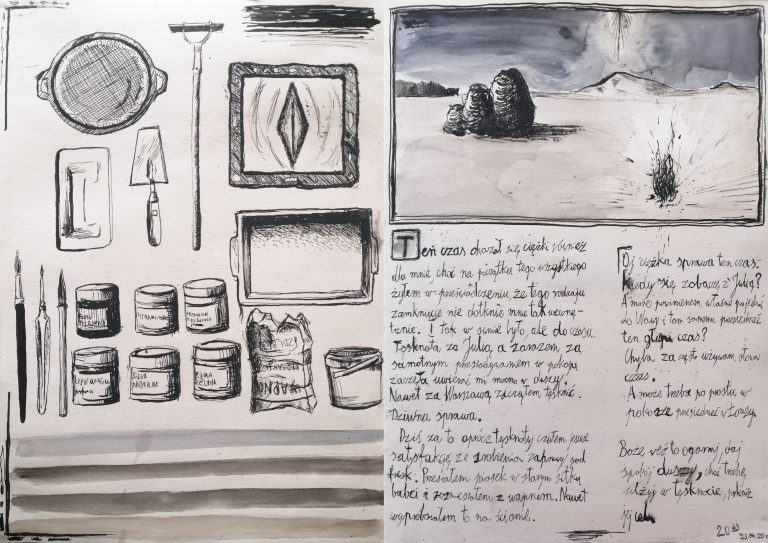 Ten czas okazał się ciężki również
dla mnie, choć na początku tego wszystkiego
żyłem w przeświadczeniu, że tego rodzaju
zamknięcie nie dotknie mnie tak wewnę-
trznie. I tak w sumie było, ale do czasu.
Tęsknota za Julią, a zarazem, za
samotnym przesiadywaniem w pokoju
zaczęła uwierać mi mocno w duszę.
Nawet za Warszawą zacząłem tęsknić.
Dziwna sprawa.
Dziś za to oprócz tęsknoty czułem jeszcze
satysfakcję ze zrobienia zaprawy pod
fresk. Przesiałem piasek w starym sitku
babci i zmieszałem z wapnem. Nawet
wypróbowałem to na ścianie.
Oj ciężka sprawa ten czas.
Kiedy się zobaczę z Julią?
A może powinienem właśnie pojechać
do Wawy i tam samemu przesiedzieć
ten głupi czas?
Chyba za często używam słowa
czas.
A może trzeba po prostu w
pokorze przesiedzieć w
Boże weź to ogarnij, daj
spokój duszy, choć trochę
ulżyj w tęsknocie, pokaż
jej cel.
20:43